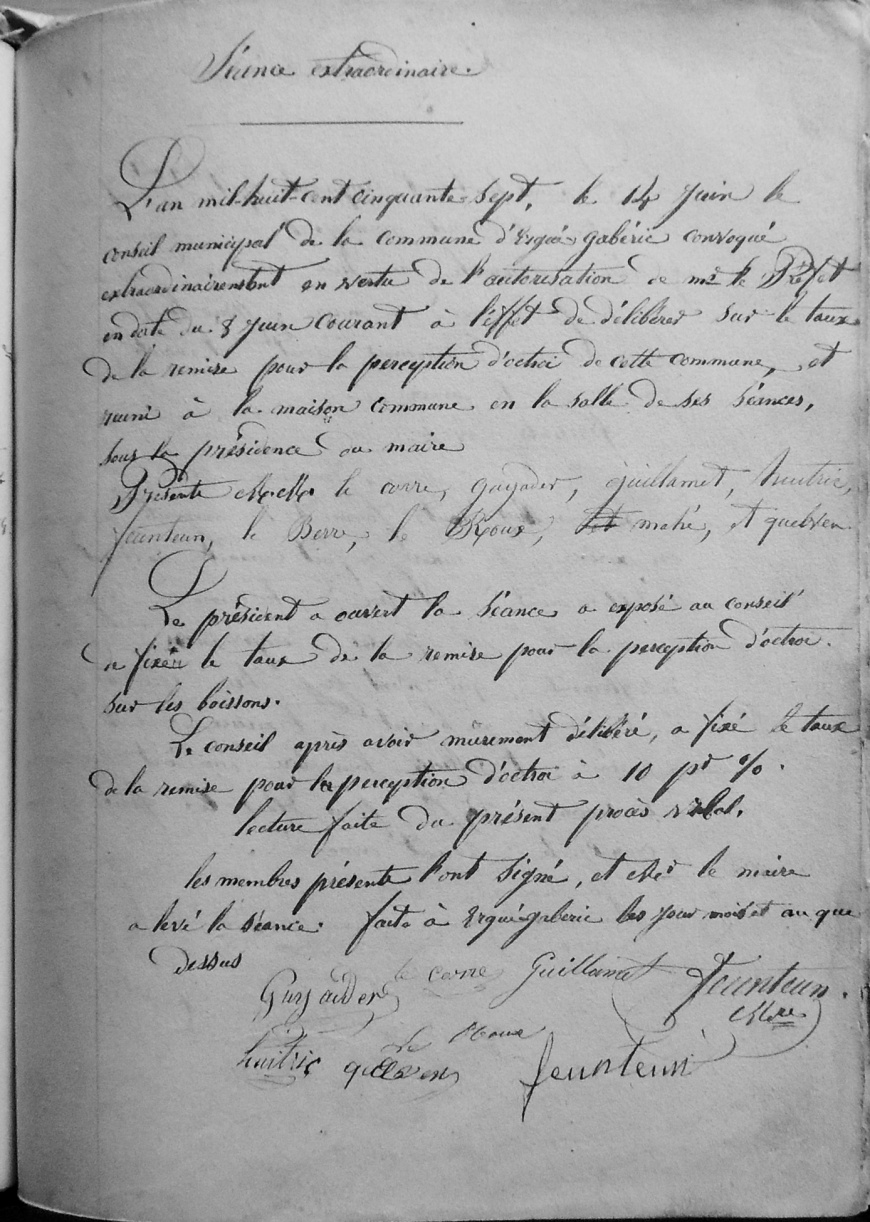 Séance extraordinaire.
L'an mil-huit-cent cinquante sept, le 14 Juin le
conseil municipal de la commune d'Ergué gabéric convoqué
extraordinairement en vertu de l'autorisation de mr le Préfet
en date du 8 Juin courant à l'effet de délibérer sur le taux
de la remise pour la perception d'octroi de cette commune, et
reuni à la maison commune en la salle de ses séances,
sous la présidence du maire
Présents MM. le corre, gayader, guillamet, huitric,
feunteun, le Berre, le Roux, mahé, et quelven
Le président a ouvert la séance a exposé au conseil
a fixer le taux de la remise pour la perception d'octroi
sur les boissons.
Le conseil après avoir mûrement délibéré, a fixé le taux
de la remise pour la perception d'octroi à 10 pr %.
lecture faite du présent procès verbal,
les membres présents l'ont signé, et Mr le maire
a levé la séance. faite à Ergué-gabéric les jour mois et an que
dessus
Guyader le corre Guillamet feunteun.
Mre
huitric quelven le Roux feunteun